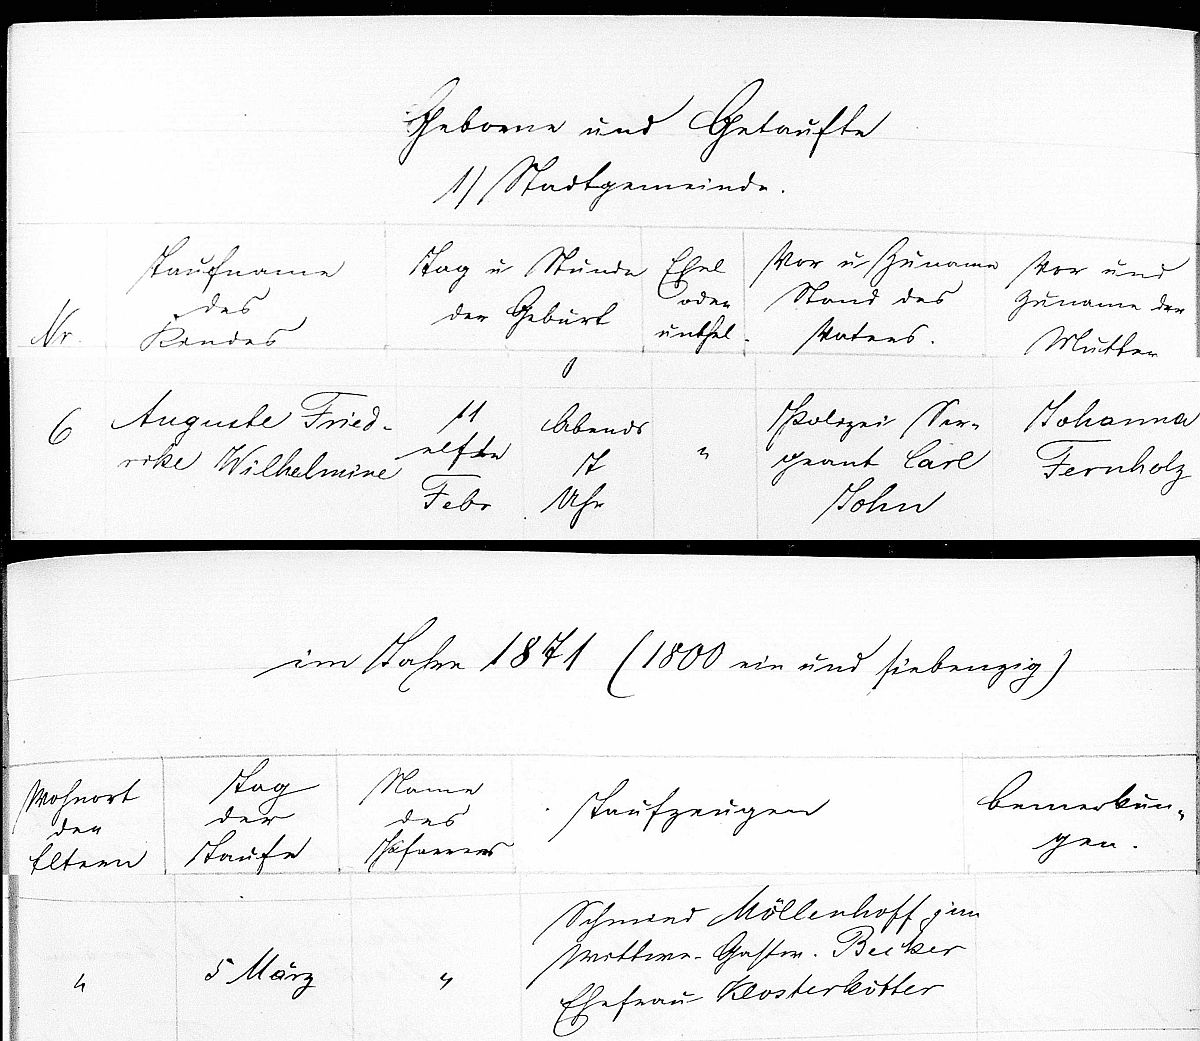 Geborne und Getaufte
1) Stadtgemeinde.
Nr.
Taufname
des
Kindes
Tag u Stunde
der Geburt
Ehel
oder
unehel.
Vor u Zuname
Stand des
Vaters.
Vor und
Zuname der
Mutter
6
Auguste Fried-
rike Wilhelmine
11
elfte
Febr
Abends
7
Uhr
"
Polizei Ser-
geant Carl
John
Johanna
Fernholz
im Jahre 1871 (1800 ein und siebenzig)
Wohnort
der
Eltern
Tag
der
Taufe
Name
des
Pfarrers
Taufzeugen
Bemerkun-
gen.
"
5 März
"
Schmied Möllenhoff jun
Wittwe Becker
Ehefrau Klosterkötter